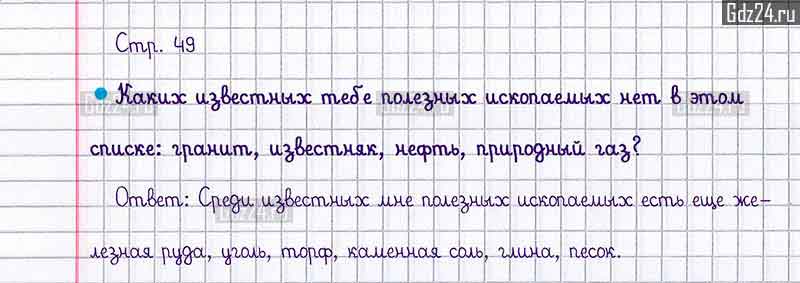 Gdz24.ru
Стр. 49
Каких известных тебе полезных ископаемых нет в этом
списке: гранит, известняк, нефть, природный газ?
Ответ: Среди известных мне полезных ископаемых есть еще же-
лезная руда, уголь, торф, каменная соль, глина, песок.